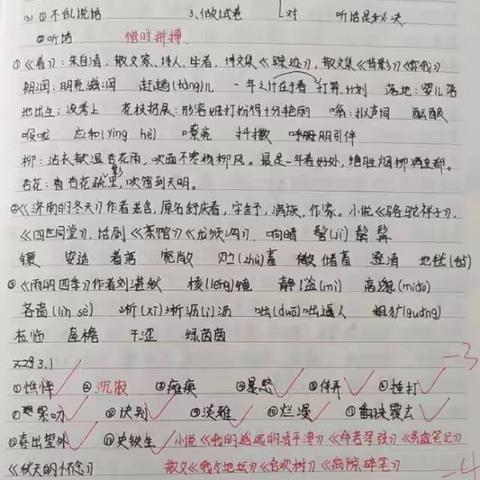 (3) ①不乱说话 3.做试卷 对 听话是秘决
②听话 惜时拼搏
①《春》：朱自清，散文家、诗人、学者，诗文集《踪迹》，散文集《背影》《你我》
朗润：明亮滋润 赶趟(tàng)儿 一年之计在于春 打算，计划 落地：婴儿落
地出生；没着上 花枝招展：形容姐打扮得十分艳丽 嗡：拟声词 酝酿
喉咙 应和(yìng hè) 嘹亮 抖擞 呼朋引伴
柳：沾衣欲湿杏花雨，吹面不寒杨柳风。最是一年春好处，绝胜烟柳满皇都。
杏花：杏花疏影里，吹笛到天明。
②《济南的冬天》作者老舍，原名舒庆春，字舍予，满族，作家。小说《骆驼祥子》，
《四世同堂》，话剧《茶馆》《龙须沟》。响晴 髻(jì) 鬓 髯
镶 安适 着落 宽敞 贮(zhù)蓄 储蓄 澄清 地毯
③《雨的四季》作者刘湛秋 棱(léng)镜 静谧(mì) 高邈(miǎo)
吝啬(lìn sè) 淅(xī)淅沥(lì)沥 咄(duō)咄逼人 粗犷(guǎng)
莅临 屋檐 干涩 绿茵茵
②沉寂 ③瘫痪 ⑥捶打
⑧诀别 ⑨淡雅 ⑩烂漫 ⑪翻来覆去
⑫喜出望外 ⑬史铁生 小说《我的遥远的清平湾》《务虚笔记》
《秋天的怀念》 散文《我与地坛》《合欢树》《病隙碎笔》
-3
-4